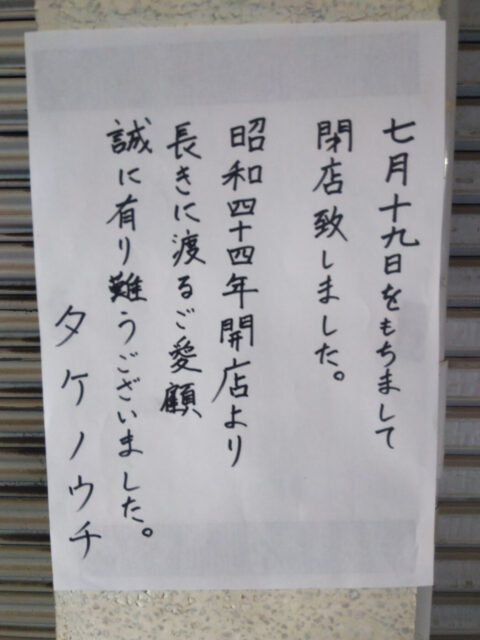 七月十九日をもちまして
閉店致しました。
昭和四十四年開店より
長きに渡るご愛顧
誠に有り難うございました。
タケノウチ